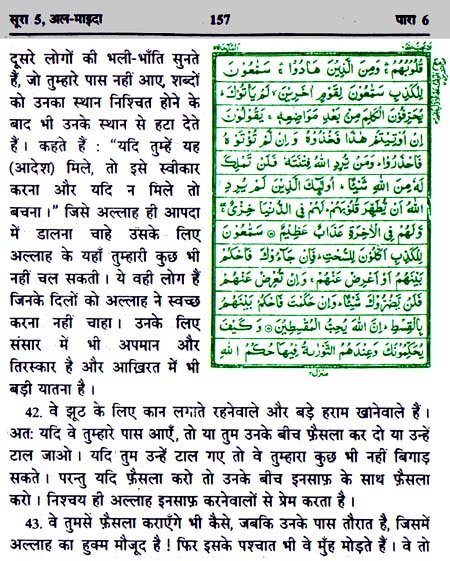 सूरा 5, अल-माइदा 157 पारा 6
दूसरे लोगों की भली-भाँति सुनते
हैं, जो तुम्हारे पास नहीं आए, शब्दों
को उनका स्थान निश्चित होने के
बाद भी उनके स्थान से हटा देते
हैं। कहते हैं : "यदि तुम्हें यह
(आदेश) मिले, तो इसे स्वीकार
करना और यदि न मिले तो
बचना।" जिसे अल्लाह ही आपदा
में डालना चाहे उसके लिए
अल्लाह के यहाँ तुम्हारी कुछ भी
नहीं चल सकती। ये वही लोग हैं
जिनके दिलों को अल्लाह ने स्वच्छ
करना नहीं चाहा। उनके लिए
संसार में भी अपमान और
तिरस्कार है और आख़िरत में भी
बड़ी यातना है।
قُلُوبُهُمْ ۛ وَمِنَ الَّذِينَ هَادُوا ۛ سَمّٰعُونَ
لِلْكَذِبِ سَمّٰعُونَ لِقَوْمٍ اٰخَرِينَ ۙ لَمْ يَأْتُوكَ ۭ
يُحَرِّفُونَ الْكَلِمَ مِنْۢ بَعْدِ مَوَاضِعِهٖ ۚ يَقُولُونَ
اِنْ اُوتِيتُمْ هٰذَا فَخُذُوهُ وَاِنْ لَّمْ تُؤْتَوْهُ
فَاحْذَرُوا ۭ وَمَنْ يُّرِدِ اللّٰهُ فِتْنَتَهٗ فَلَنْ تَمْلِكَ
لَهٗ مِنَ اللّٰهِ شَيْئًا ۭ اُولٰٓئِكَ الَّذِينَ لَمْ يُرِدِ
اللّٰهُ اَنْ يُّطَهِّرَ قُلُوبَهُمْ ۭ لَهُمْ فِي الدُّنْيَا خِزْيٌ ۚ
وَّلَهُمْ فِي الْاٰخِرَةِ عَذَابٌ عَظِيمٌ ۝ سَمّٰعُونَ
لِلْكَذِبِ اَكّٰلُونَ لِلسُّحْتِ ۭ فَاِنْ جَآءُوكَ فَاحْكُمْ
بَيْنَهُمْ اَوْ اَعْرِضْ عَنْهُمْ ۚ وَاِنْ تُعْرِضْ عَنْهُمْ
فَلَنْ يَّضُرُّوكَ شَيْئًا ۭ وَاِنْ حَكَمْتَ فَاحْكُمْ بَيْنَهُمْ
بِالْقِسْطِ ۭ اِنَّ اللّٰهَ يُحِبُّ الْمُقْسِطِينَ ۝ وَكَيْفَ
يُحَكِّمُونَكَ وَعِنْدَهُمُ التَّوْرٰىةُ فِيهَا حُكْمُ اللّٰهِ
42. वे झूठ के लिए कान लगाते रहनेवाले और बड़े हराम खानेवाले हैं।
अतः यदि वे तुम्हारे पास आएँ, तो या तुम उनके बीच फ़ैसला कर दो या उन्हें
टाल जाओ। यदि तुम उन्हें टाल गए तो वे तुम्हारा कुछ भी नहीं बिगाड़
सकते। परन्तु यदि फ़ैसला करो तो उनके बीच इनसाफ़ के साथ फ़ैसला
करो। निश्चय ही अल्लाह इनसाफ़ करनेवालों से प्रेम करता है।
43. वे तुमसे फ़ैसला कराएँगे भी कैसे, जबकि उनके पास तौरात है, जिसमें
अल्लाह का हुक्म मौजूद है! फिर इसके पश्चात भी वे मुँह मोड़ते हैं। वे तो